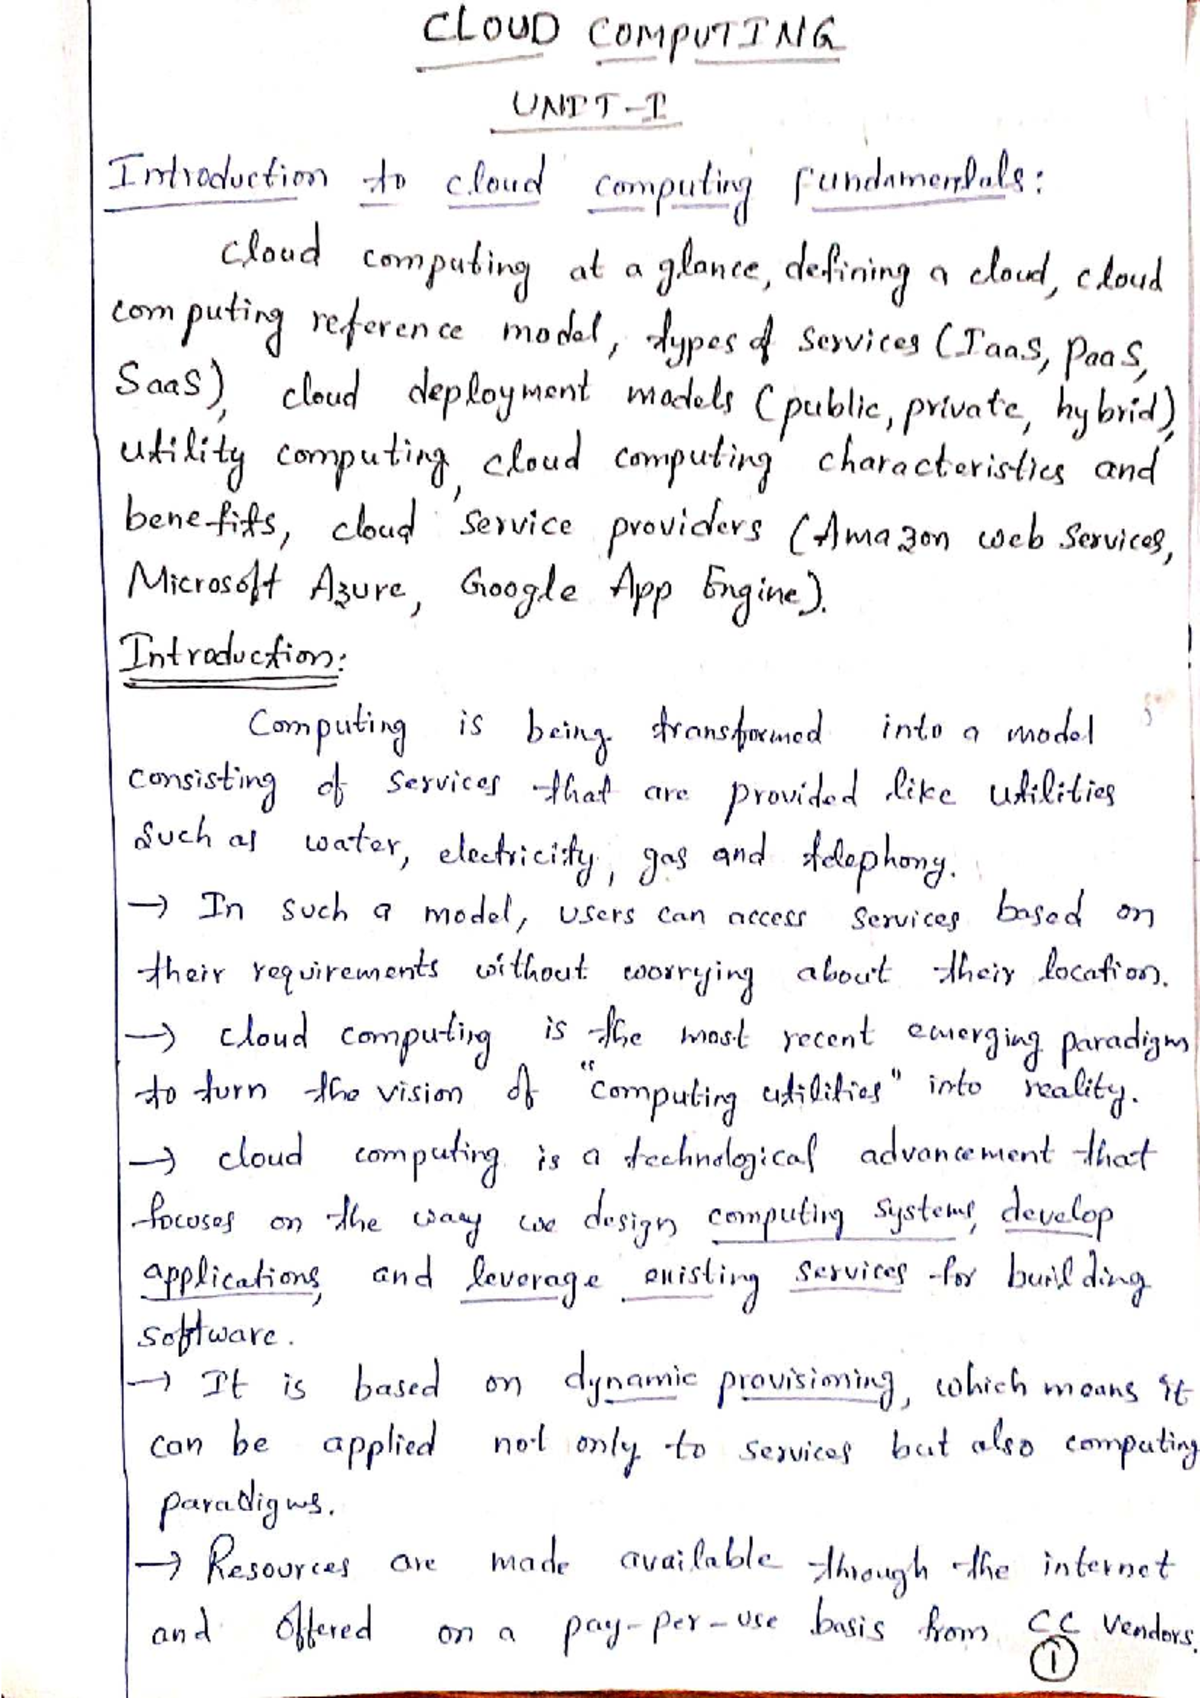 CLOUD COMPUTING
UNIT-I
Introduction to cloud computing Fundamentals:
Cloud computing at a glance, defining a cloud, cloud
computing reference model, types of services (IaaS, PaaS,
SaaS), cloud deployment models (public, private, hybrid),
utility computing, cloud computing characteristics and
benefits, cloud service providers (Amazon web Services,
Microsoft Azure, Google App Engine).
Introduction:
Computing is being transformed into a model
consisting of services that are provided like utilities
such as water, electricity, gas and telephony.
→ In such a model, users can access services based on
their requirements without worrying about their location.
→ cloud computing is the most recent emerging paradigm
to turn the vision of "computing utilities" into reality.
→ cloud computing is a technological advancement that
focuses on the way we design computing systems, develop
applications, and leverage existing services for building
software.
→ It is based on dynamic provisioning, which means it
can be applied not only to services but also computing
paradigms.
→ Resources are made available through the internet
and offered on a pay-per-use basis from CC vendors.
1